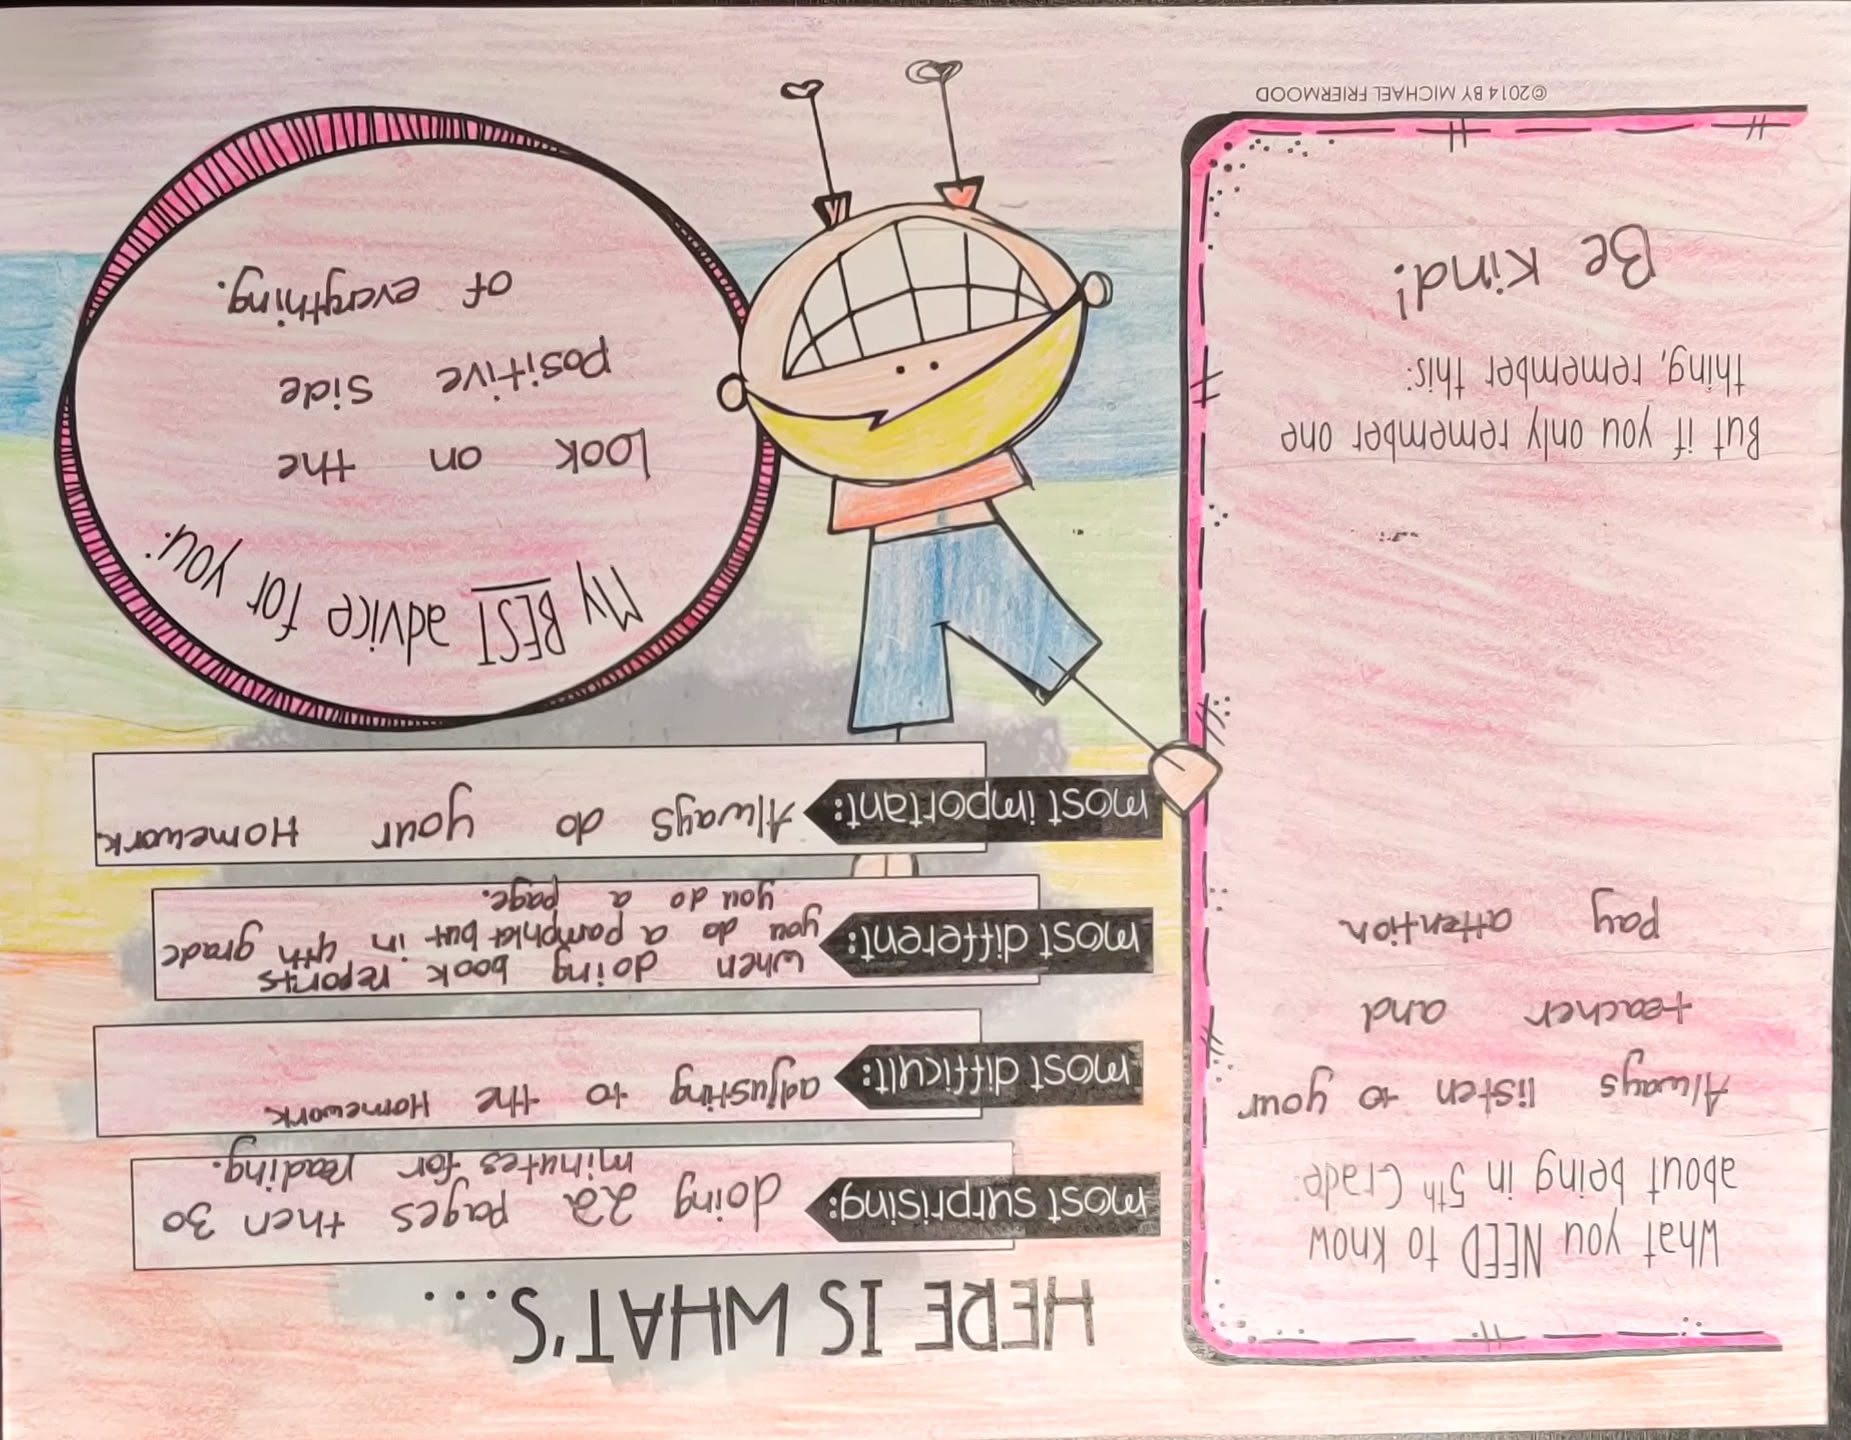 What you NEED to know
about being in 5th Grade:
Always listen to your
teacher and
pay attention
But if you only remember one
thing, remember this:
Be kind!
©2014 BY MICHAEL FRIERMOOD
HERE IS WHAT'S...
most surprising: doing 22 pages then 30
minutes for reading.
most difficult: adjusting to the Homework
most different: when doing book reports
you do a pamphlat but in 4th grade
you do a page.
most important: Always do your Homework.
My BEST advice for you:
Look on the
positive side
of everything.